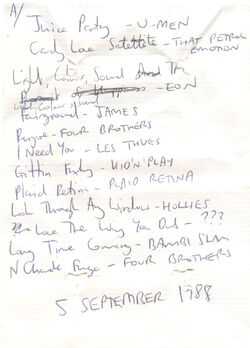 A/
Juice Party - U-MEN
Candy Love Satellite - THAT PETROL EMOTION
Light, Colour, Sound
- EON
Fairground - JAMES
- FOUR BROTHERS
I Need You - LES THUGS
Gittin Funky - KID'N'PLAY
Plaid Retina - PLAID RETINA
Look Through Any Window - HOLLIES
Love The Way You Dub - ???
Long Time Coming - BAMBI SLAM
- FOUR BROTHERS
5 SEPTEMBER 1988